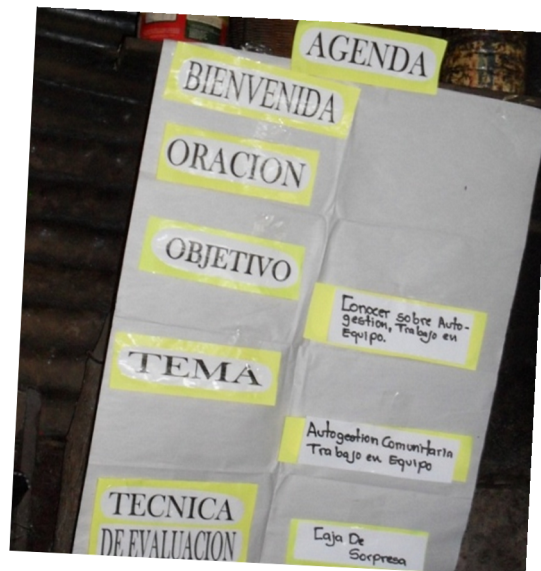 AGENDA
BIENVENIDA
ORACION
OBJETIVO
Conocer sobre Auto-
gestion, Trabajo en
Equipo.
TEMA
Autogestion Comunitaria
Trabajo en Equipo
TECNICA
DE EVALUACION
Caja De
Sorpresa